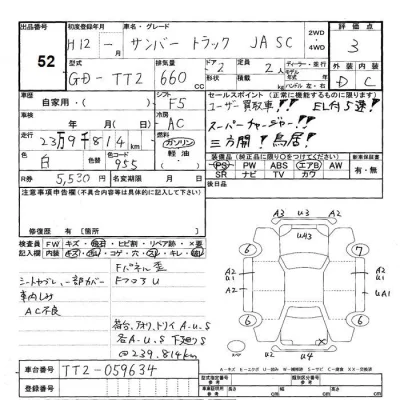 出品番号 52
初度登録年月 H12 - 月
車名・グレード サンバー トラック JA SC
2WD・4WD
評価点 3
型式 GD-TT2
排気量 660 cc
ドア 2
定員 2人
形状
積載 kg
ディーラー・並行
モデル年式 年
ハンドル 左・右
外装 内装 D C
車歴 自家用・( )
シフト F5
車検 年 月
冷房 AC
走行 23万9千814 km
燃料 ガソリン 軽油 ( )
色 白
色コード 955
R券 5,530 円
名変期限 月 日
セールスポイント (見落とされると正確に機能するものに限ります)
ユーザー買取車!! EL付5速!
スーパーチャージャー!!
三方開! 鳥居!
装備品 (純正品に限り○をつけてください)
PS PW ABS エアB AW
SR ナビ TV カワ
新車保証書 有・無
注意事項申告欄 (不具合内容等は具体的に記入して下さい。)
修復歴 有 [箇所 ]
検査員記入欄
Fパネル歪
シートヤブレ、一部カバー Fフロア U
車内しみ
AC不良
荷台、アオリ、トリイ A.U.S
各A.U.S 下廻りS
@239,814km
A3 U3 A2 U43 6 6 A2 U1 A2 A2 U1 UA1 7 7 A2 U2 U4
車台番号 TT2-059634
登録番号